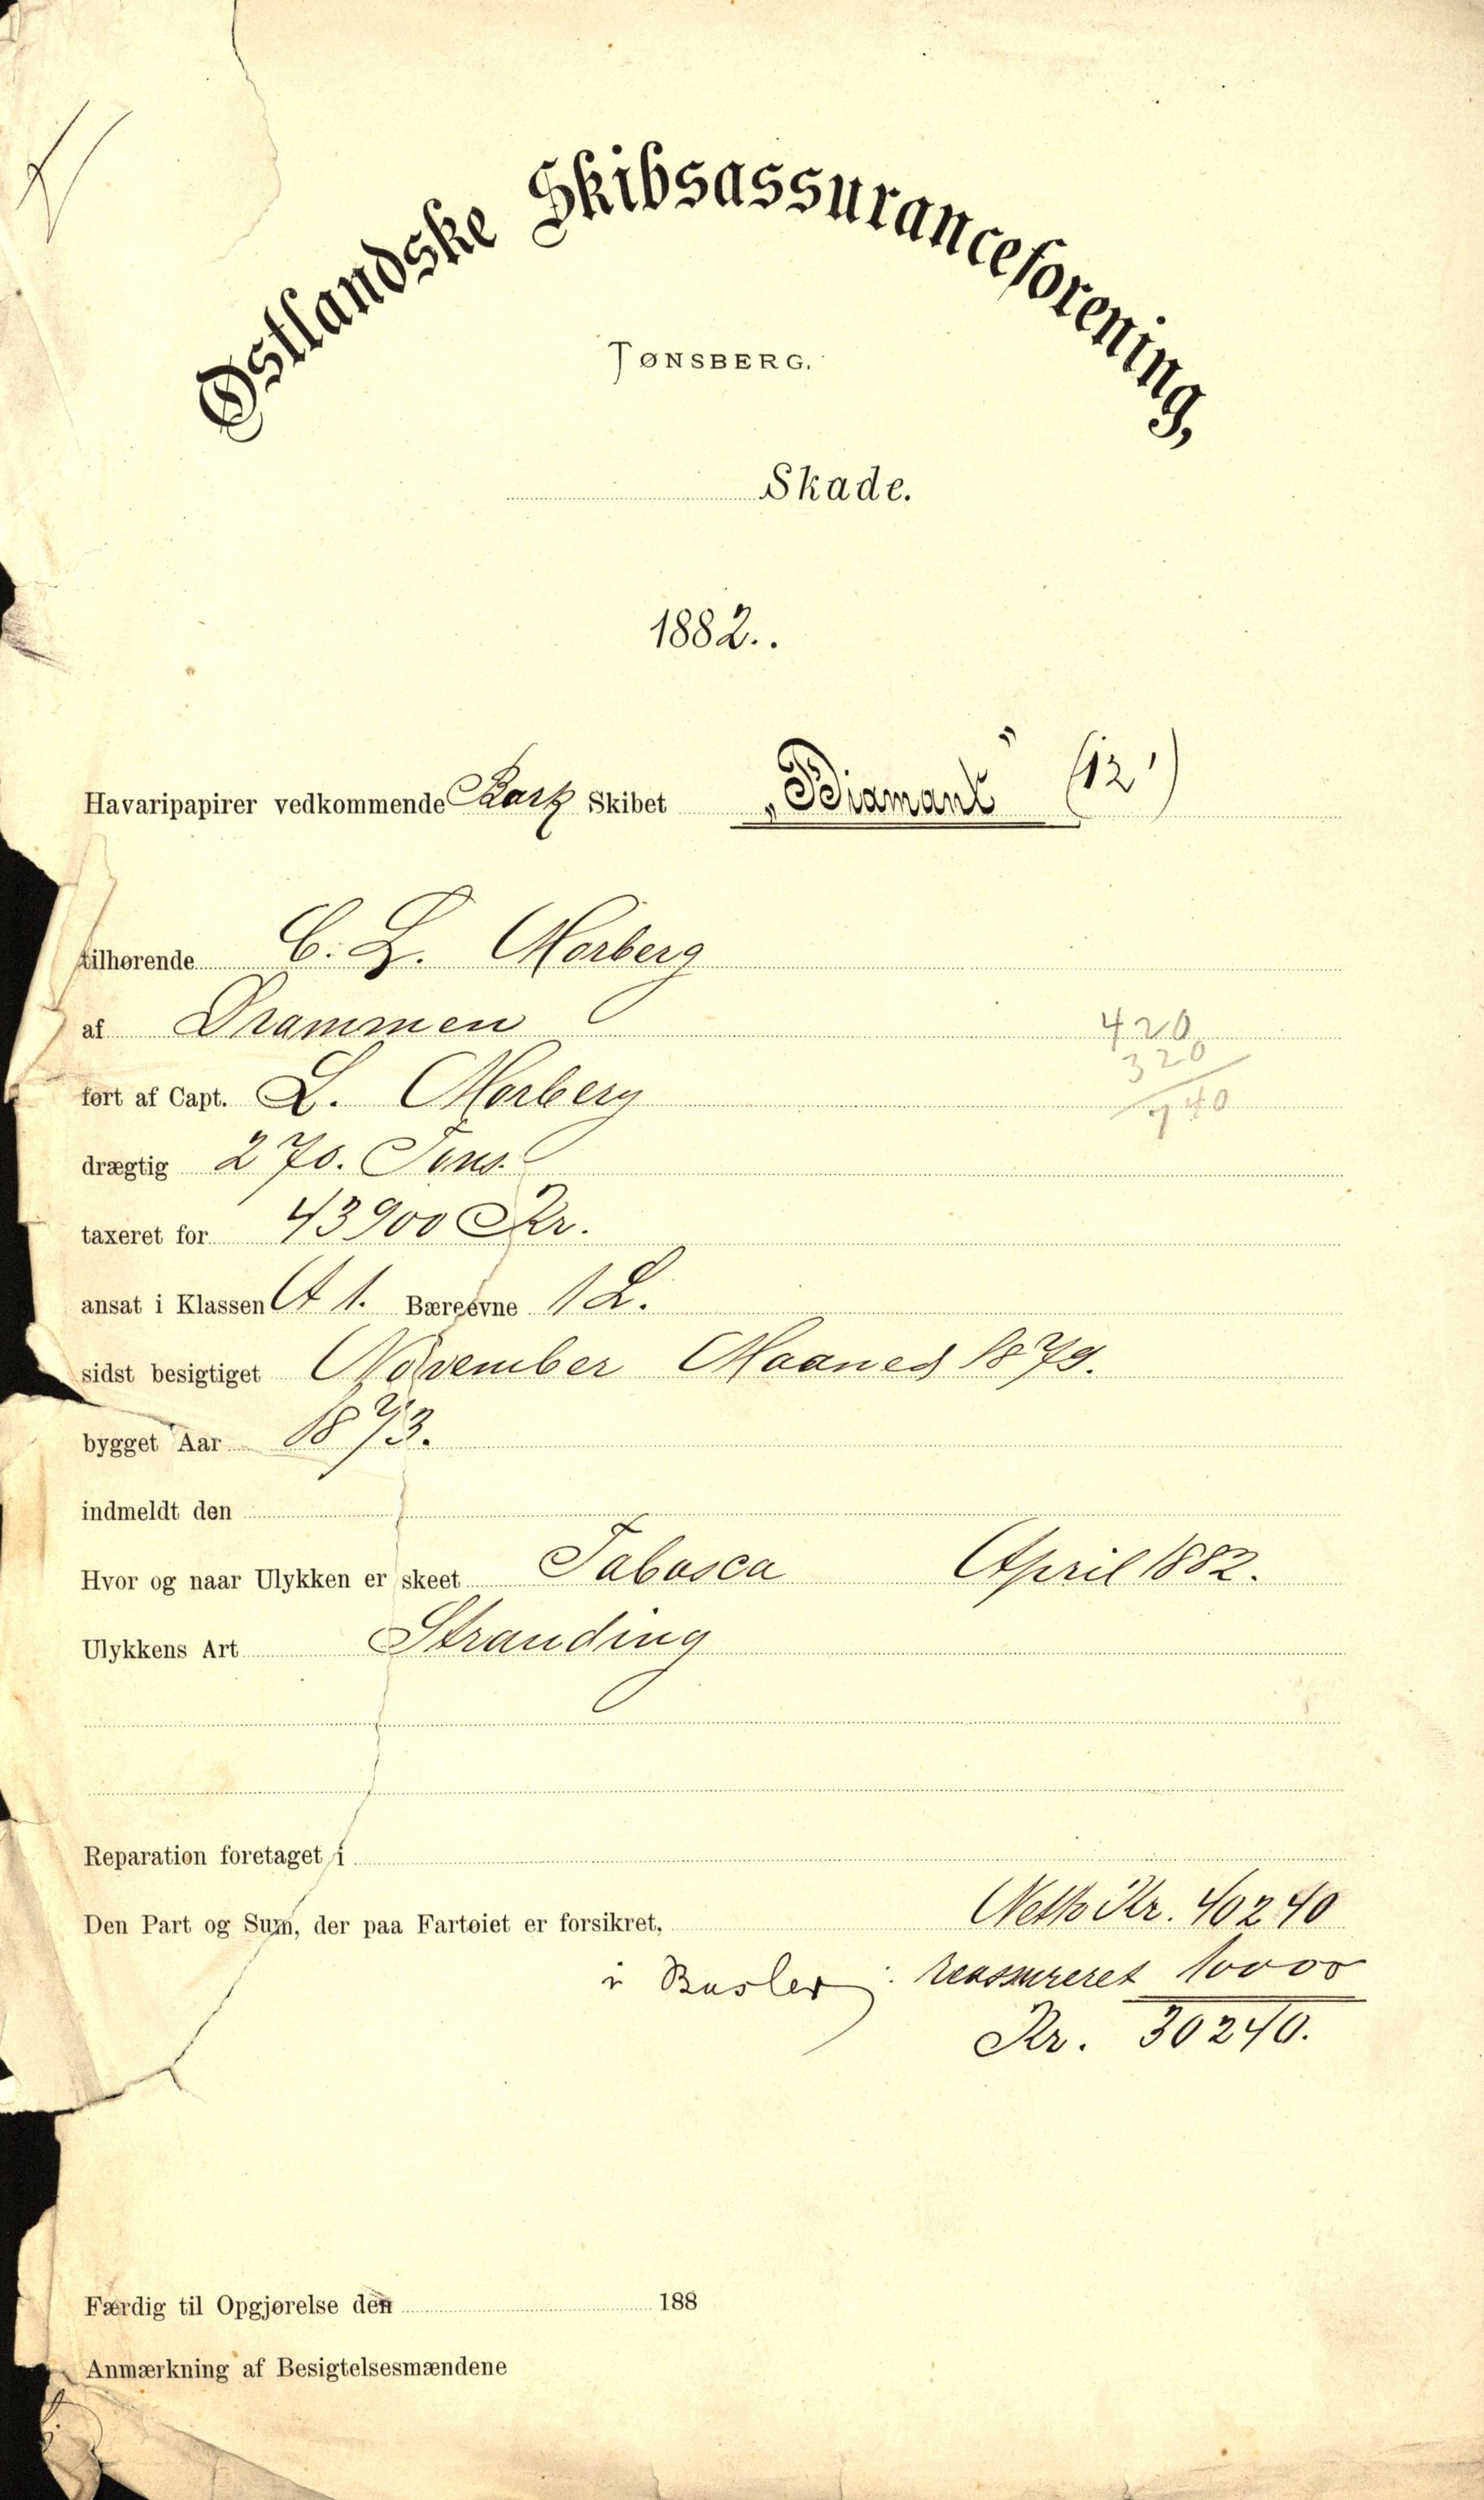 Østlandske Skibsassuranceforening,
TØNSBERG.
Skade.
1882..
Havaripapirer vedkommende Bark Skibet „Diamant” (12')
tilhørende C. L. Morberg
af Drammen
420
320
740
ført af Capt. L. Morberg
drægtig 270. Tons.
taxeret for 43900 Kr.
ansat i Klassen A 1. Bæreevne 1 L.
sidst besigtiget November Maaned 1879.
bygget Aar 1873.
indmeldt den
Hvor og naar Ulykken er skeet Tabasca April 1882.
Ulykkens Art Stranding
Reparation foretaget i
Den Part og Sum, der paa Fartøiet er forsikret, Netto Kr. 40240
i reassureret 10000
Kr. 30240.
Færdig til Opgjørelse den 188
Anmærkning af Besigtelsesmændene